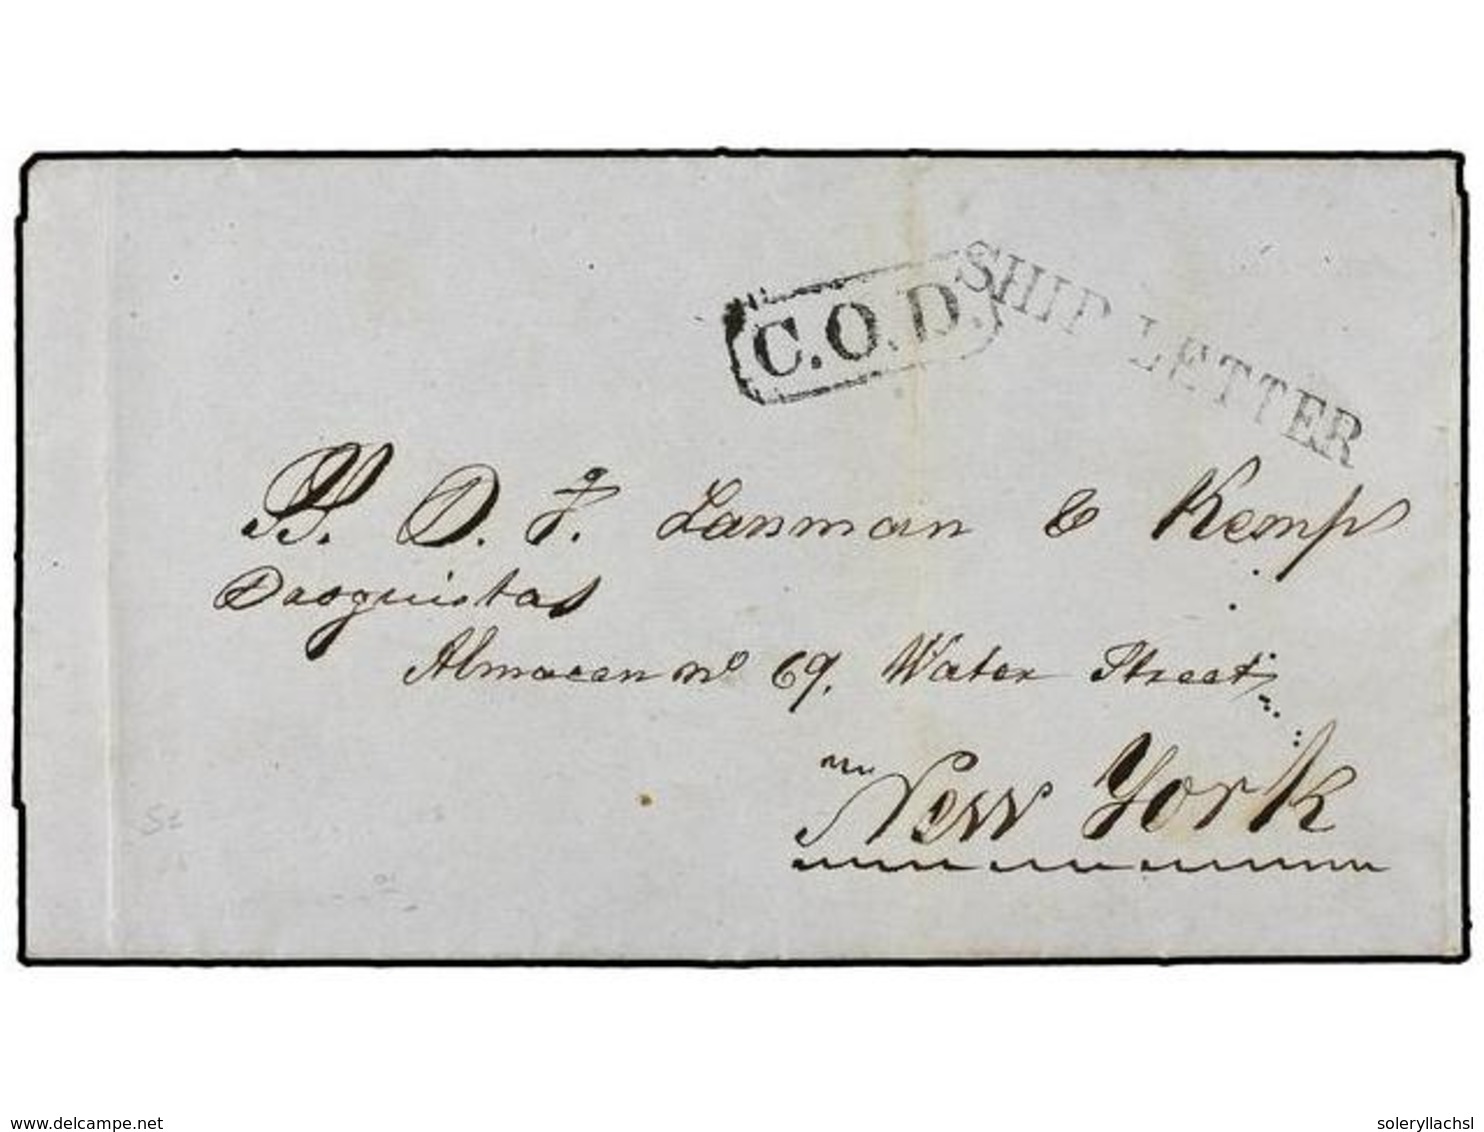 C.O.D.
SHIP LETTER
S. D. Jº. Lanman & Kemp
Daoguistas
Almacen nº 69. Water Street
New York
delcampe.net
soleryllachsl